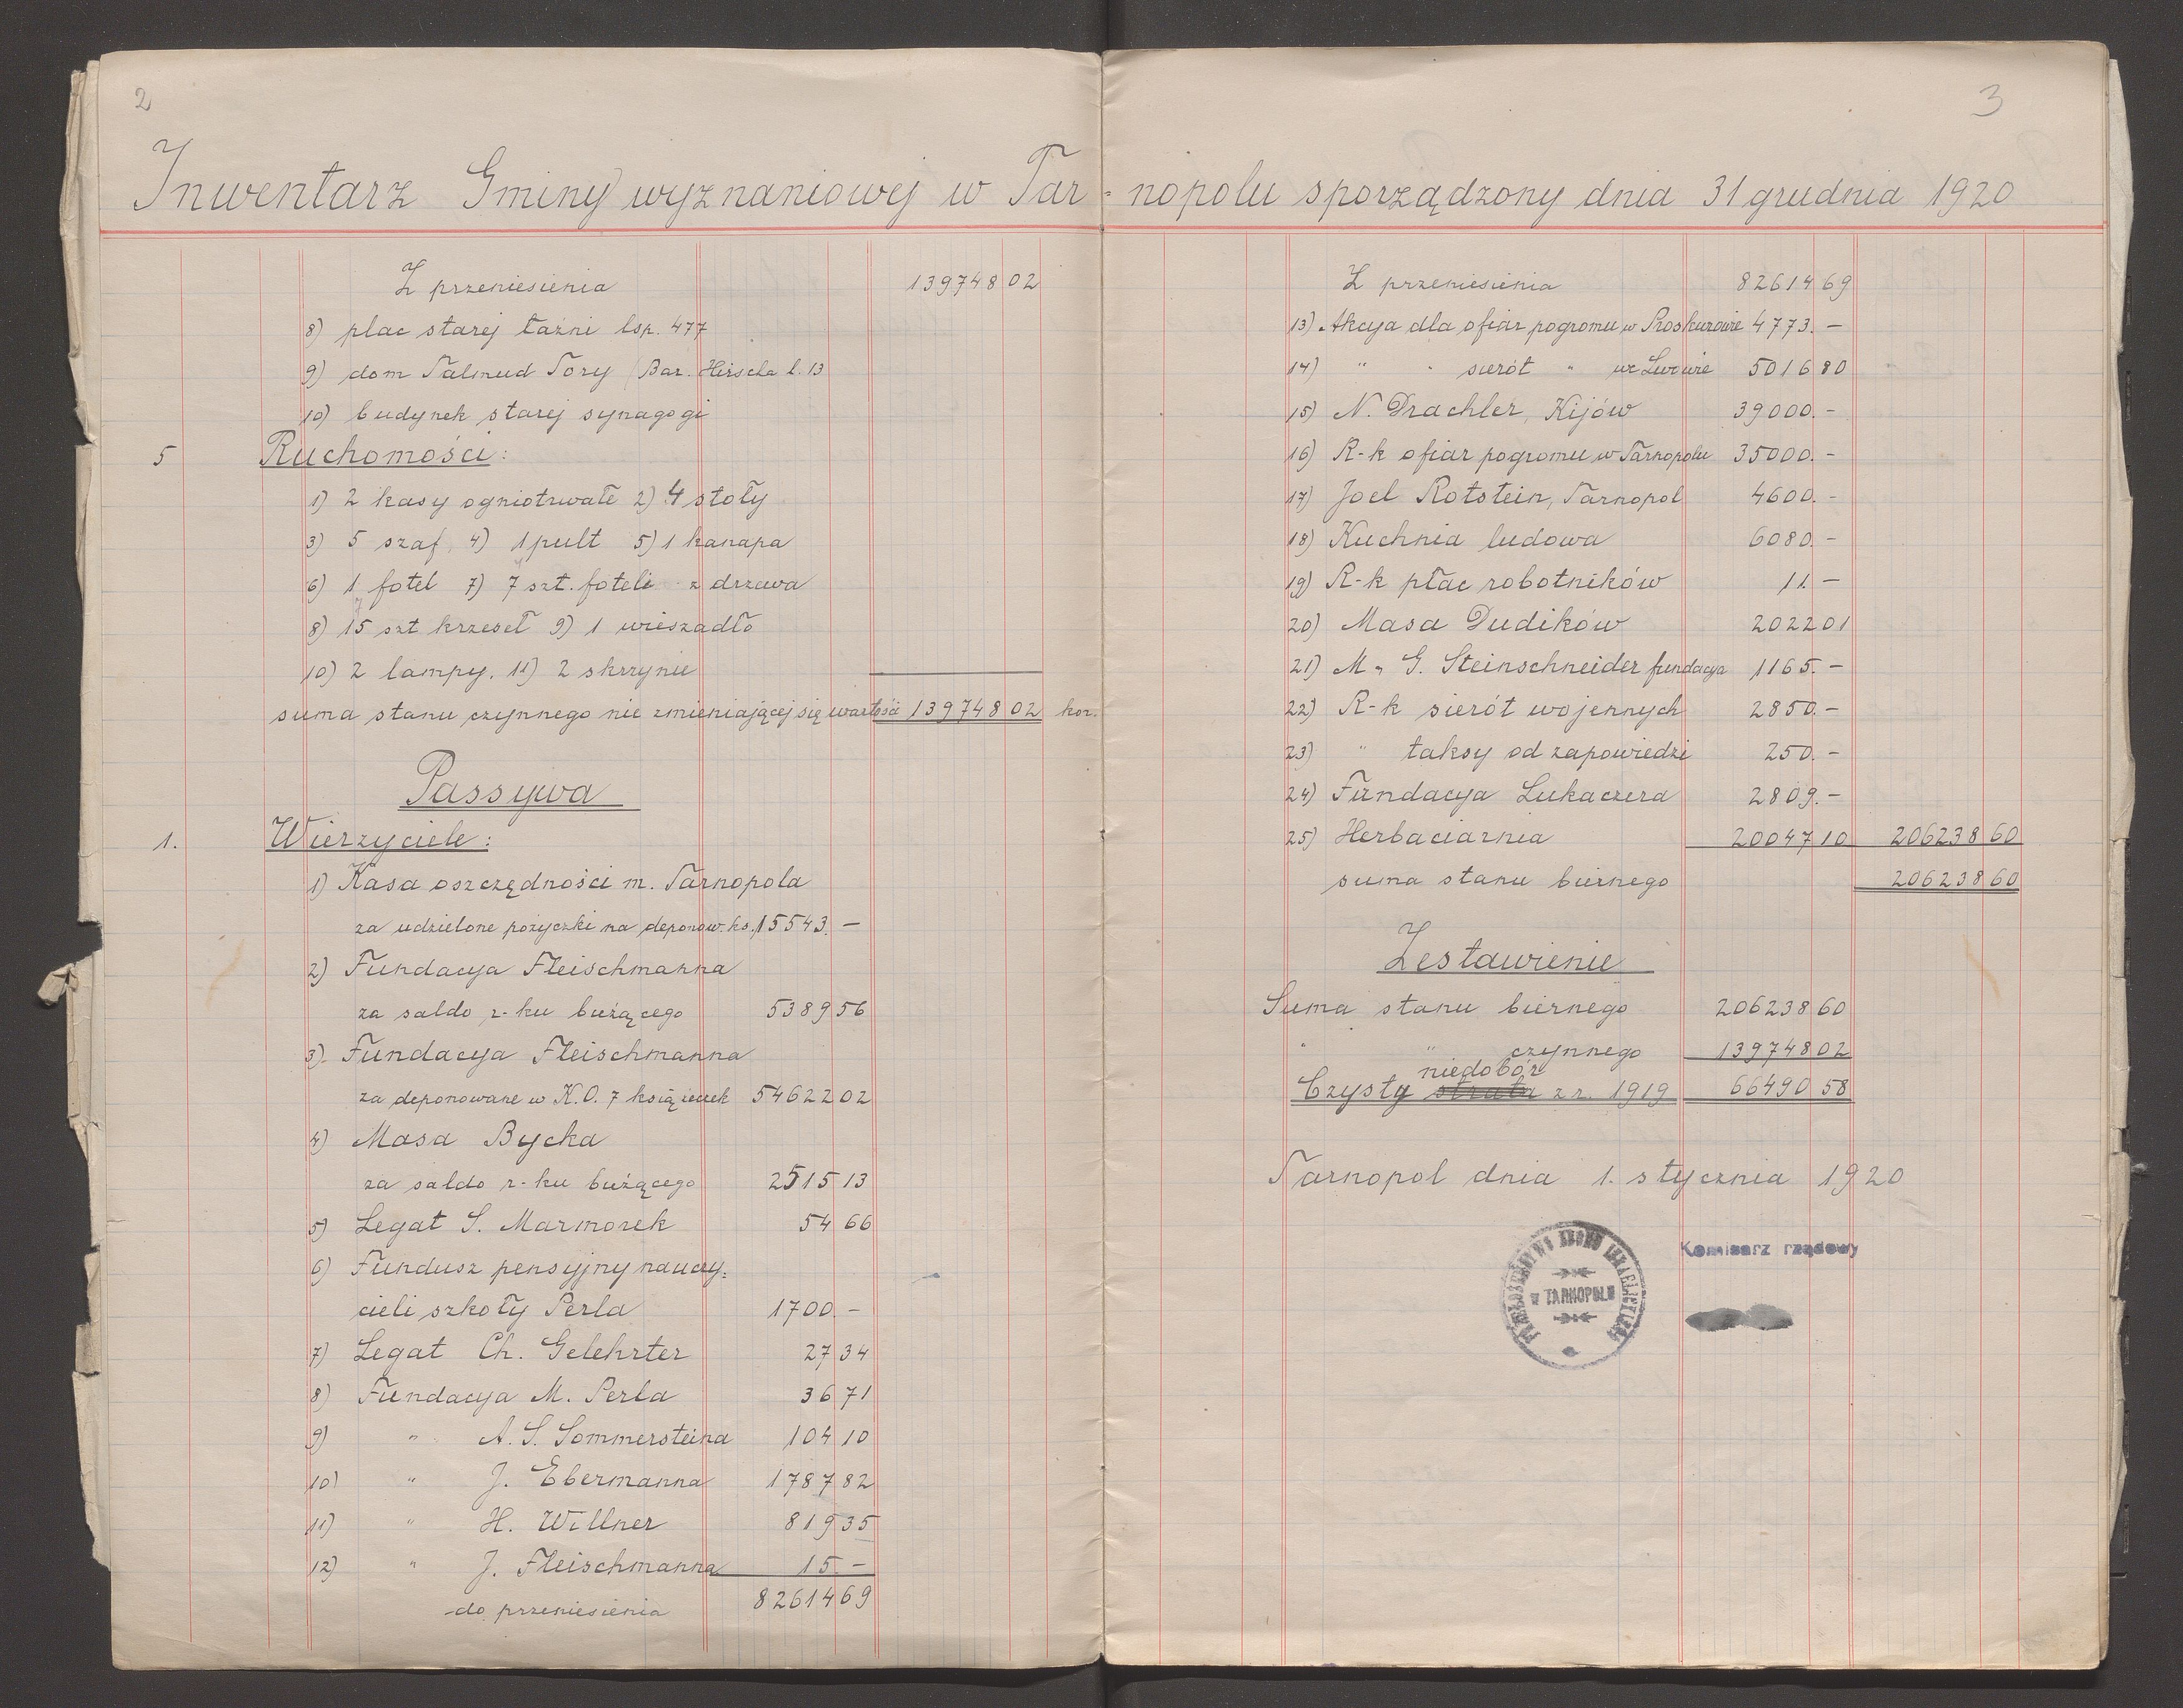 2
Inwentarz Gminy wyznaniowej w Tar=
Z przeniesienia 139748 02
8) plac starej łaźni lsp. 477
9) dom Talmud Tory (Bar. Hirscha l. 13
10) budynek starej synagogi
5 Ruchomości:
1) 2 kasy ogniotrwałe 2) 4 stoły
3) 5 szaf, 4) 1 pult 5) 1 kanapa
6) 1 fotel 7) 7 szt. foteli z drzewa
8) 15 szt krzeseł 9) 1 wieszadło
10) 2 lampy. 11) 2 skrzynie
suma stanu czynnego nie zmieniającej się wartości 139748 02 kor.
Passywa
1. Wierzyciele:
1) Kasa oszczędności m. Tarnopola
za udzielone pożyczki na deponow. ks. 15543.—
2) Fundacya Fleischmanna
za saldo r-ku bieżącego 5389 56
3) Fundacya Fleischmanna
za deponowane w K.O. 7 książeczek 54622 02
4) Masa Bycka
za saldo r-ku bieżącego 2515 13
5) Legat S. Marmorek 54 66
6) Fundusz pensyjny nauczy=
cieli szkoły Perla 1700.—
7) Legat Ch. Gelehrter 27 34
8) Fundacya M. Perla 36 71
9) " A. S. Sommersteina 104 10
10) " J. Ebermanna 1787 82
11) " H. Willner 819 35
12) " J. Fleischmanna 15.—
do przeniesienia 82614 69
3
nopolu sporządzony dnia 31 grudnia 1920
Z przeniesienia 82614 69
13) Akcya dla ofiar pogromu w Proskurowie 4773.—
14) " " sierót " we Lwowie 5016 80
15) N. Drachler, Kijów 39000.—
16) R-k ofiar pogromu w Tarnopolu 35000.—
17) Joel Rotstein, Tarnopol 4600.—
18) Kuchnia ludowa 6080.—
19) R-k płac robotników 11.—
20) Masa Dudików 2022 01
21) M. G. Steinschneider fundacya 1165.—
22) R-k sierót wojennych 2850.—
23) " taksy od zapowiedzi 250.—
24) Fundacya Lukaczera 2809.—
25) Herbaciarnia 20047 10 206238 60
suma stanu biernego 206238 60
Zestawienie
Suma stanu biernego 206238 60
" " czynnego 139748 02
niedobór
Czysty strata z r. 1919 66490 58
Tarnopol dnia 1. stycznia 1920
Komisarz rządowy
W TARNOPOLU